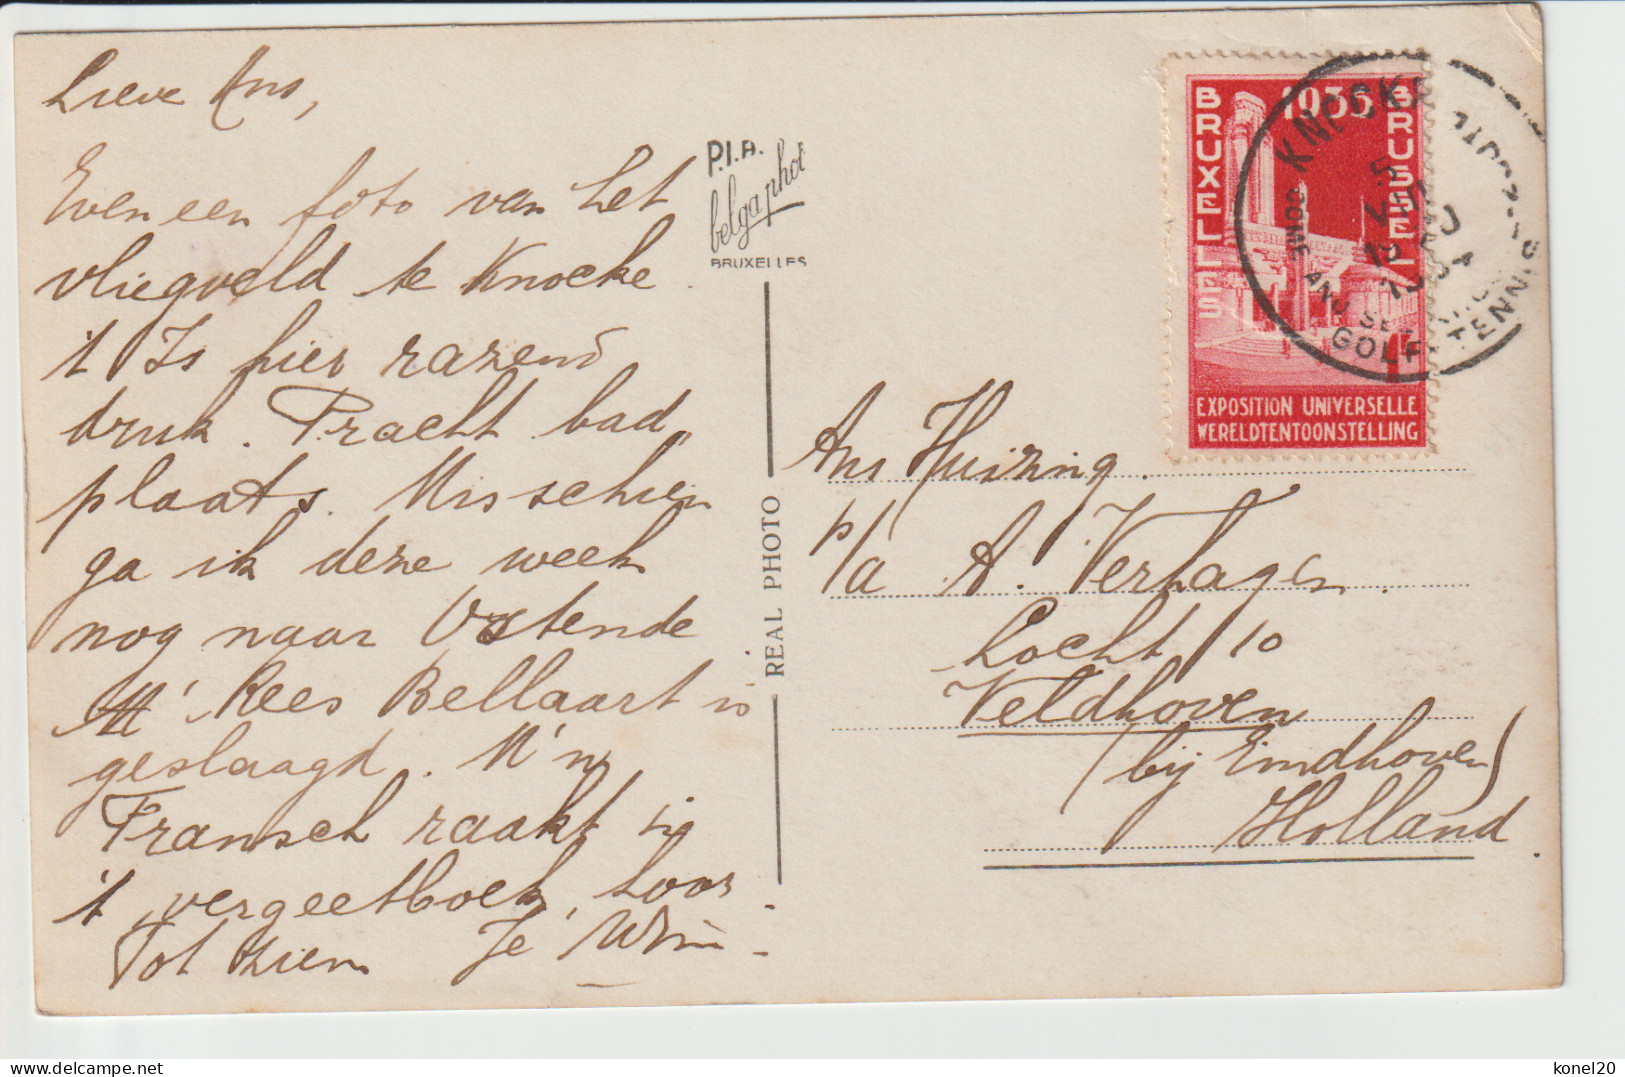 Lieve Ans,
Even een foto van het
vliegveld te Knocke.
't Is hier razend
druk. Pracht bad„
plaats. Misschien
ga ik deze week
nog naar Oostende
Kees Bellaart is
geslaagd. M'n
Fransch raakt in
't „vergeetboek„ hoor.
Tot ziens Je Wim
P.I.A.
belgaphot
BRUXELLES
REAL PHOTO
1935
BRUXELLES
BRUSSEL
EXPOSITION UNIVERSELLE
WERELDTENTOONSTELLING
KNOCKE
GOLF
Ans Huizing.
p/a A. Verhagen
Locht 10
Veldhoven
(bij Eindhoven)
Holland.
delcampe.net
konel20